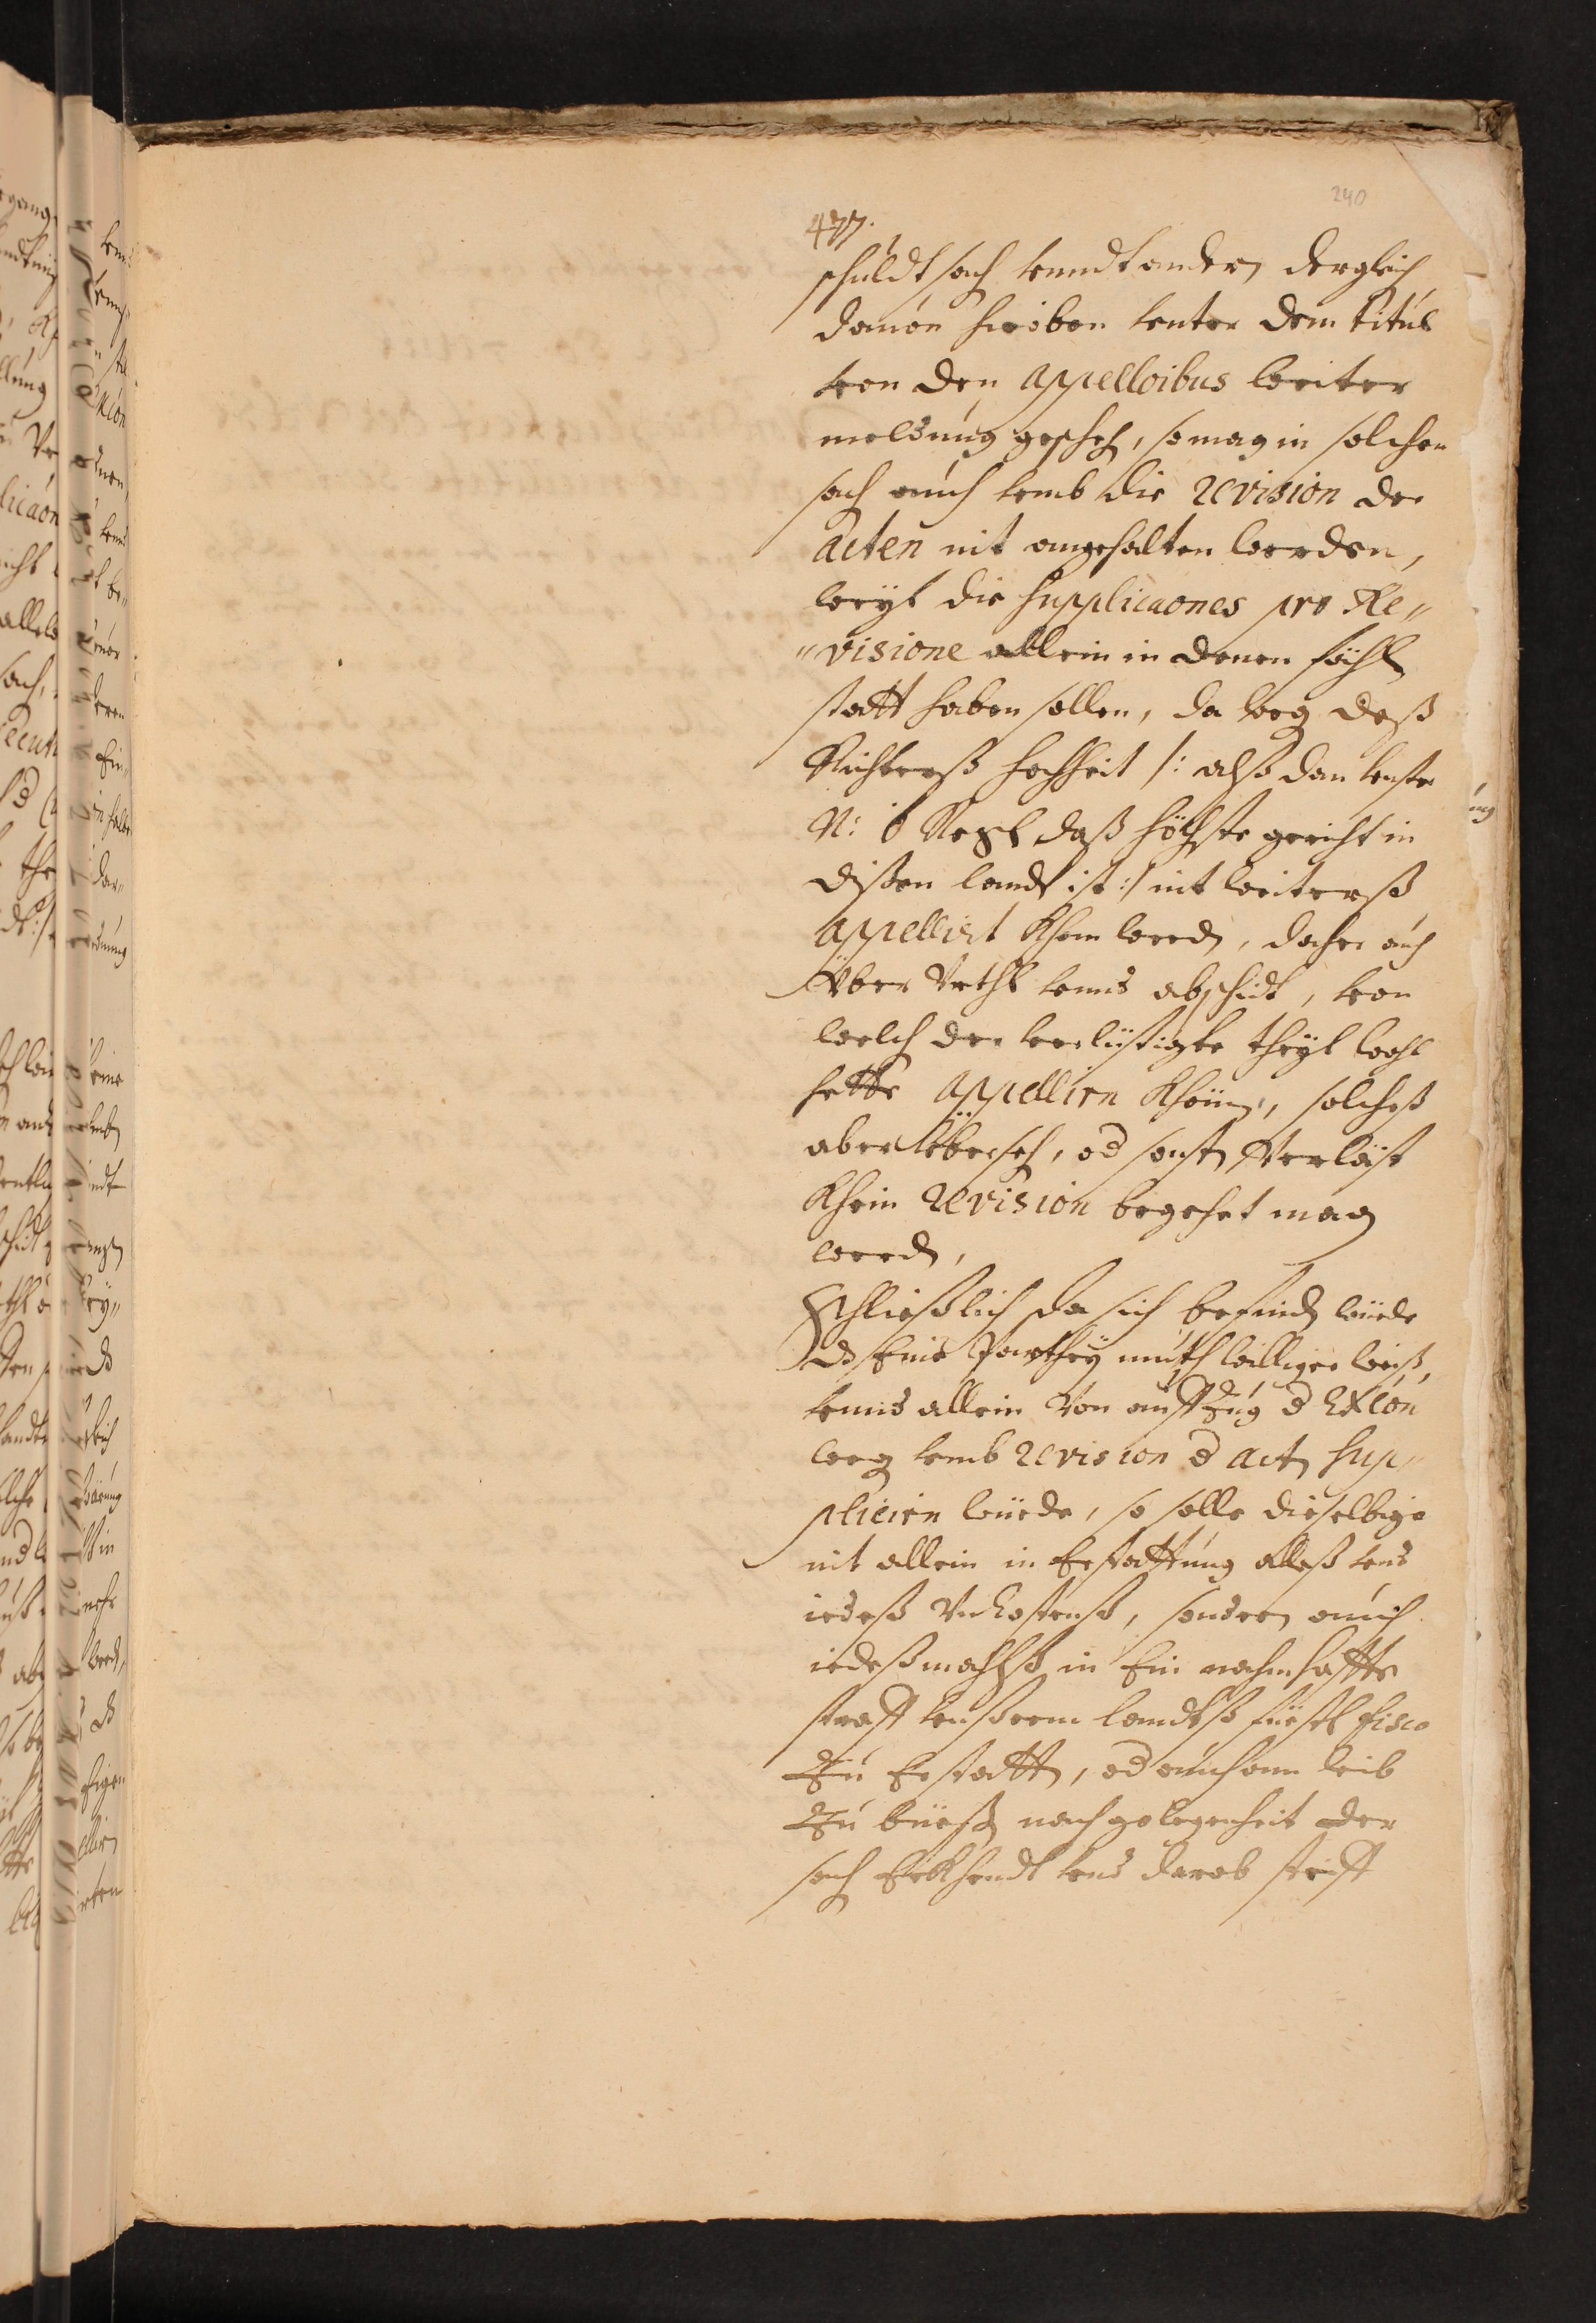 240
477.
schuldt sach vnndt andern dergleich
dauon hieoben vnter dem titul
von den Appelloibus weiter
meldung gescheh, so mag in solchen
sach auch vmb die revision der
acten nit angehalten werden,
weyl die supplicaones pro Re„
„visione allein in denen fähl
statt haben sollen, da weg deß
Richterß hochheit /: alß dan vnser
N: ö Regl daß höchste gericht in
dißen landt ist :/ nit weiterß
appellirt khan werdn, daher auch
Vber Vrthl vnnd abschidt, von
welch der verlüstigte theyl wohl
hette appellirn khönn, solcheß
aber überseh, od sonst Verläst
khein revision begehrt mag
werdn,
Schließlich da sich befindn würde
dz Eine Parthey muthwilliger weiß,
vnnd allein Von auffzug d Exeon
weg vmb revision d actn sup„
plicirn würde, so solle dieselbige
nit allein in Erstattung alleß vnd
iedeß Vnkostenß, sondern auch
iedeßmahlß in Ein nahmhaffte
straff vnßerm landtß fürstl fisco
Zu Erstattn, od auch am leib
Zu büeßn nach gelegenheit der
sach Erkhendt vnd darob steiff